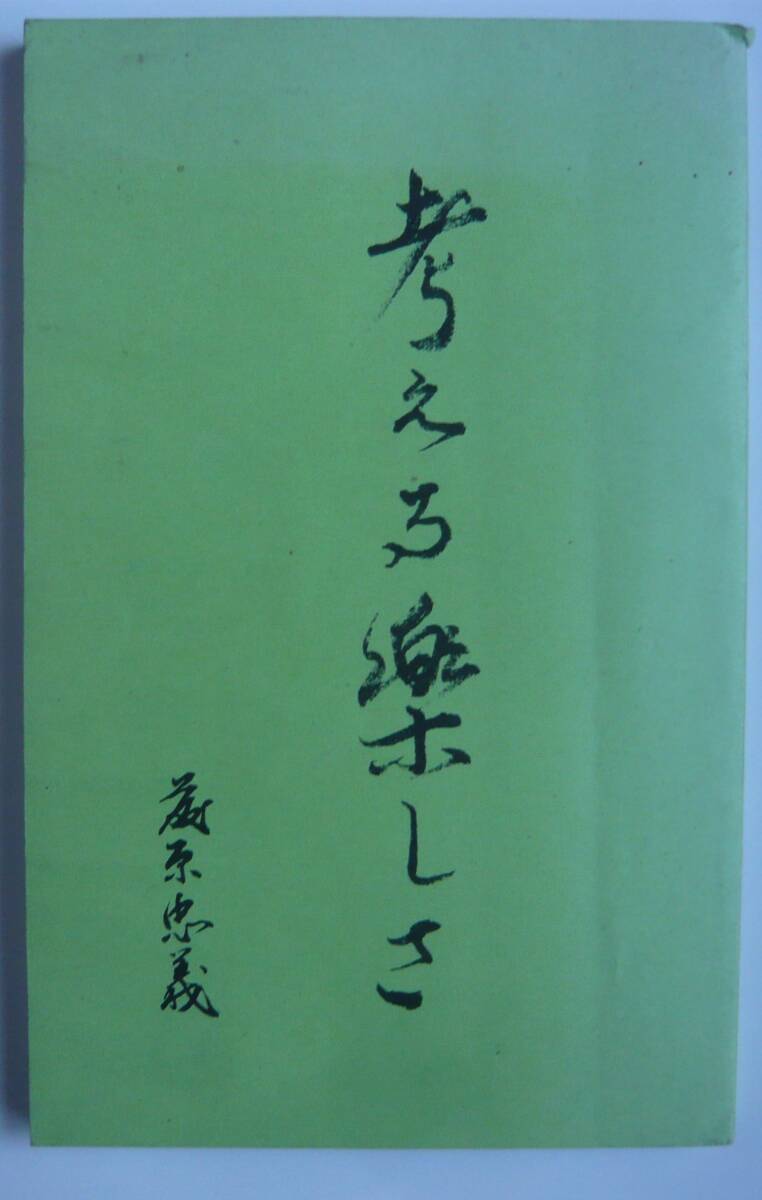 考える樂しさ
藤原忠義